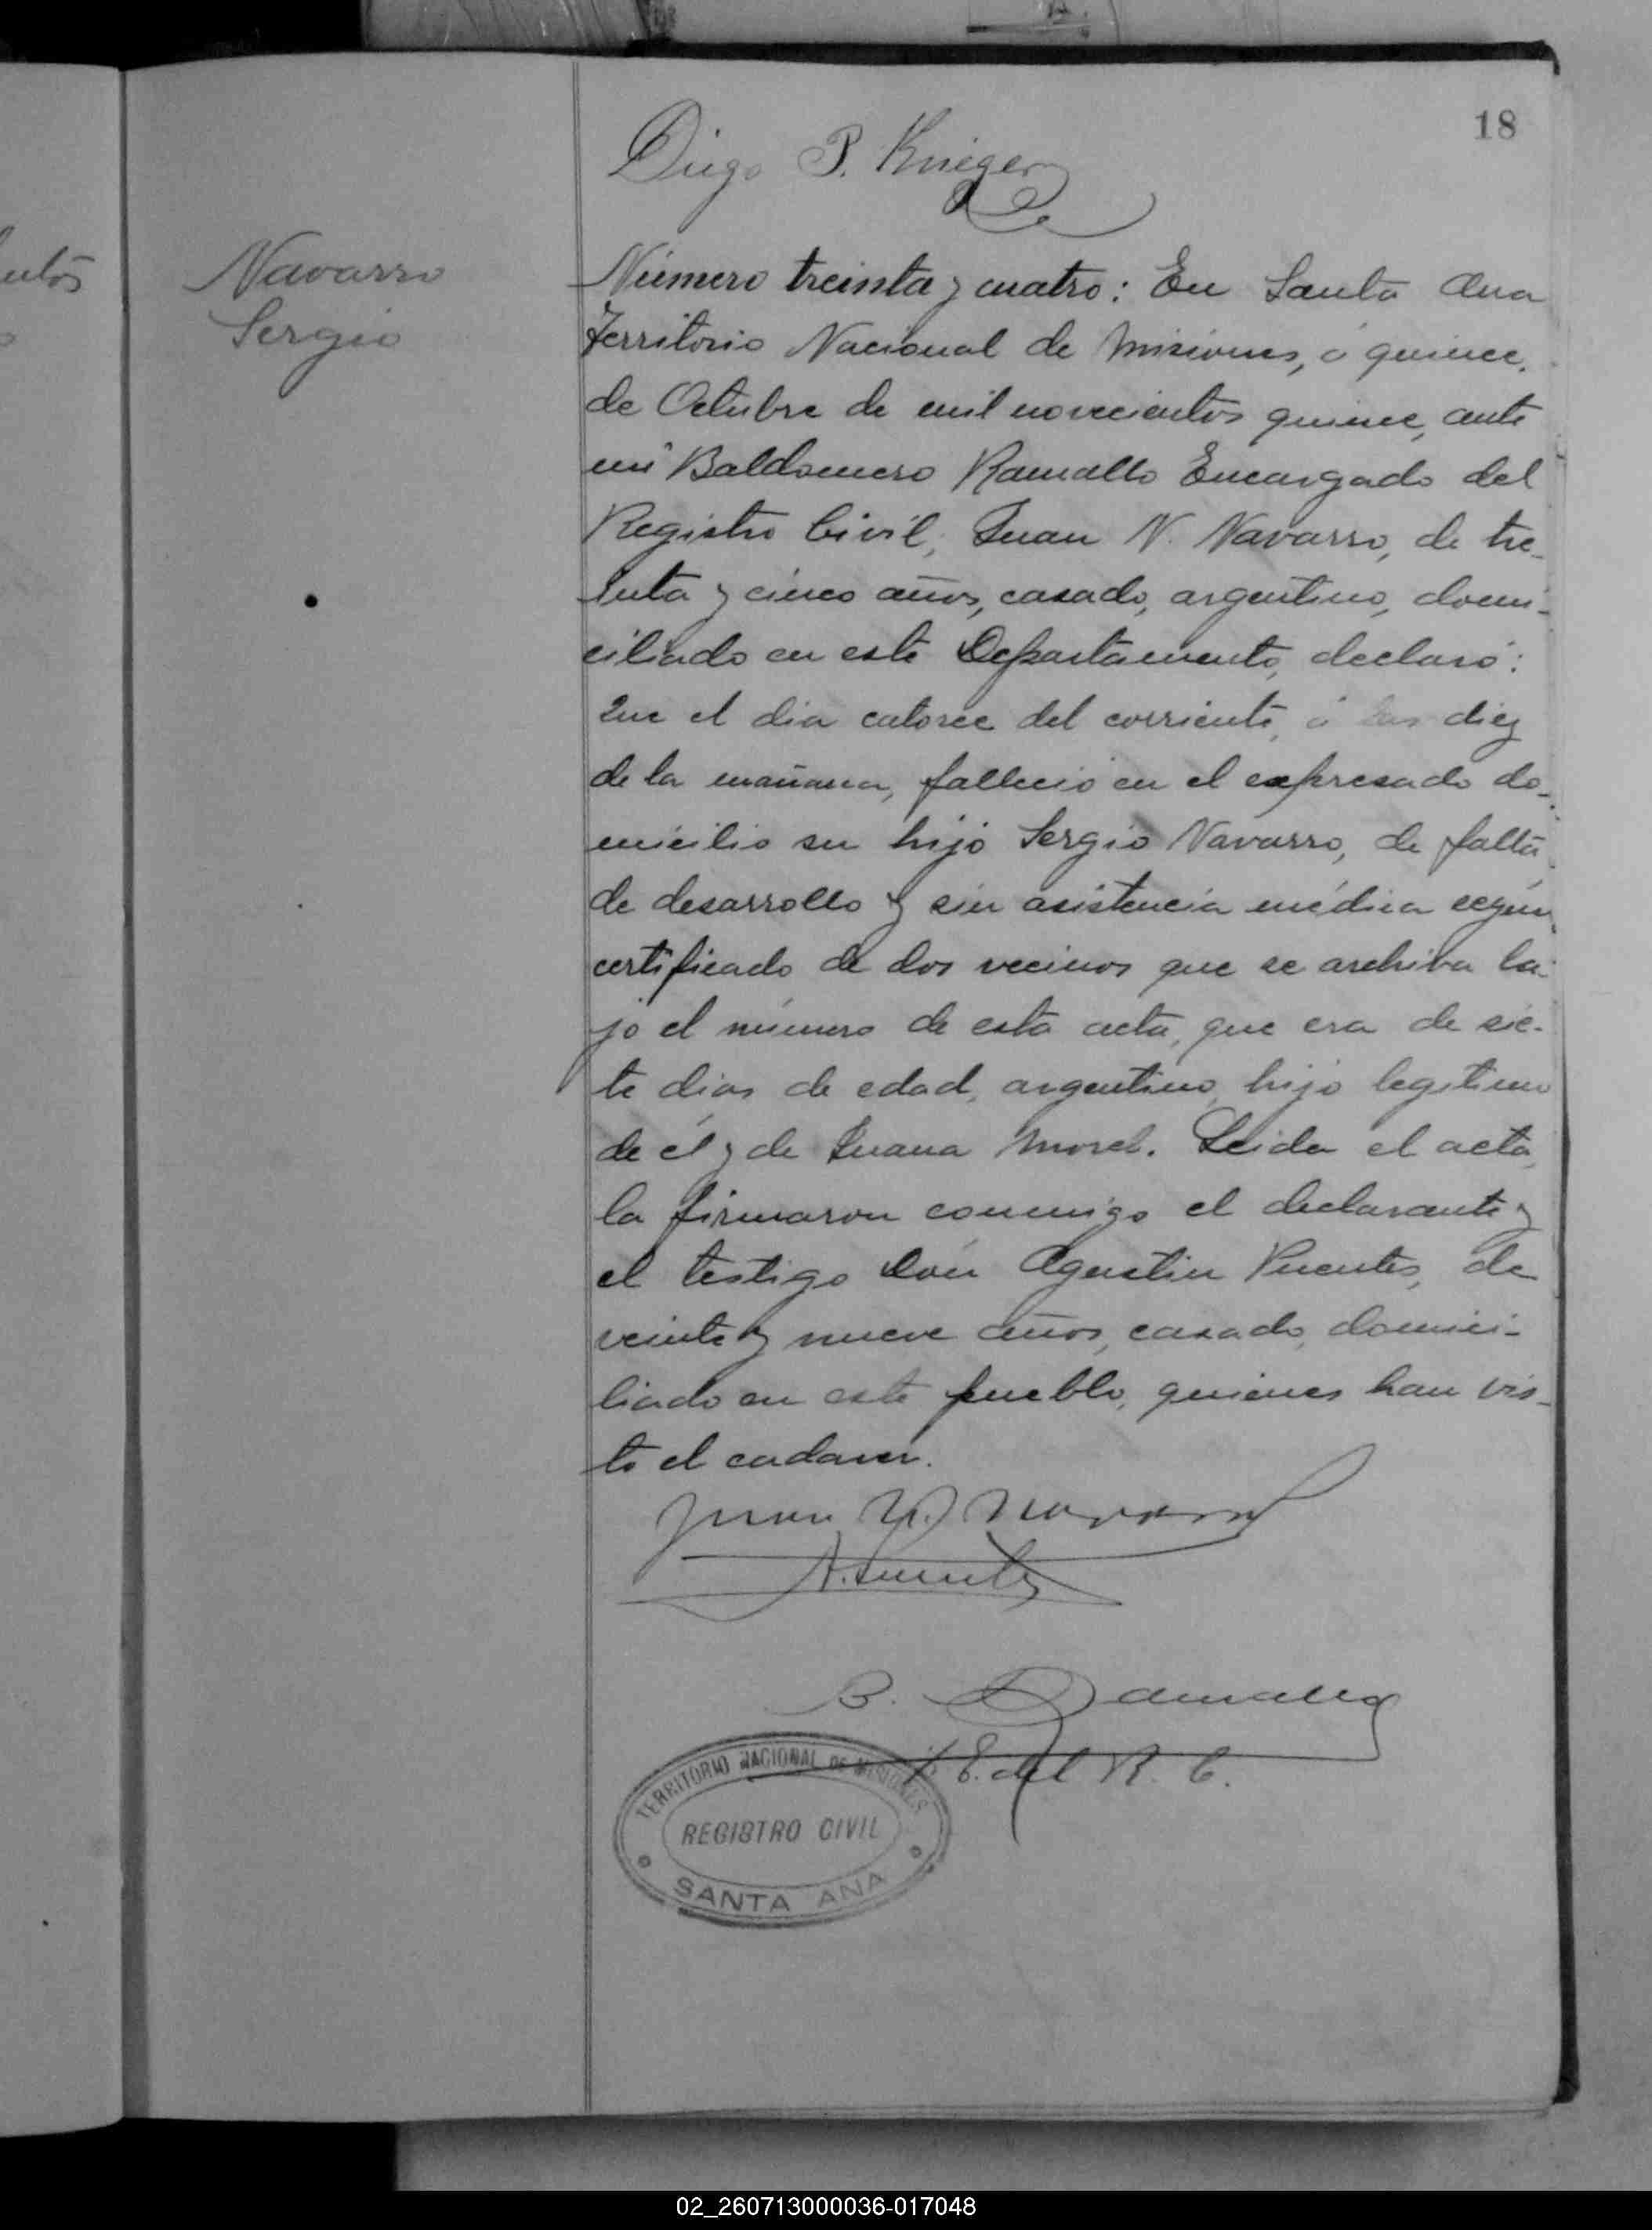 18
Diego P. Krieger
Navarro
Sergio
Número treinta y cuatro: En Santa Ana
Territorio Nacional de Misiones, á quince
de Octubre de mil novecientos quince, ante
mi Baldomero Ramallo Encargado del
Registro Civil, Juan N. Navarro, de tre-
inta y cinco años, casado, argentino, domi-
ciliado en este Departamento, declaró:
Que el dia catorce del corriente, á las diez
de la mañana, falleció en el expresado do-
micilio su hijo Sergio Navarro, de falta
de desarrollo y sin asistencia médica según
certificado de dos vecinos que se archiva ba-
jo el número de esta acta, que era de sie-
te dias de edad, argentino, hijo legitimo
de él y de Juana Morel. Leida el acta,
la firmaron conmigo el declarante y
el testigo Don Agustin Puentes, de
veinte y nueve años, casado, domici-
liado en este pueblo, quienes han vis-
to el cadaver.
Juan N. Navarro
A. Puentes
B. Ramallo
E. del R. C.
TERRITORIO NACIONAL DE MISIONES
REGISTRO CIVIL
SANTA ANA
02_260713000036-017048